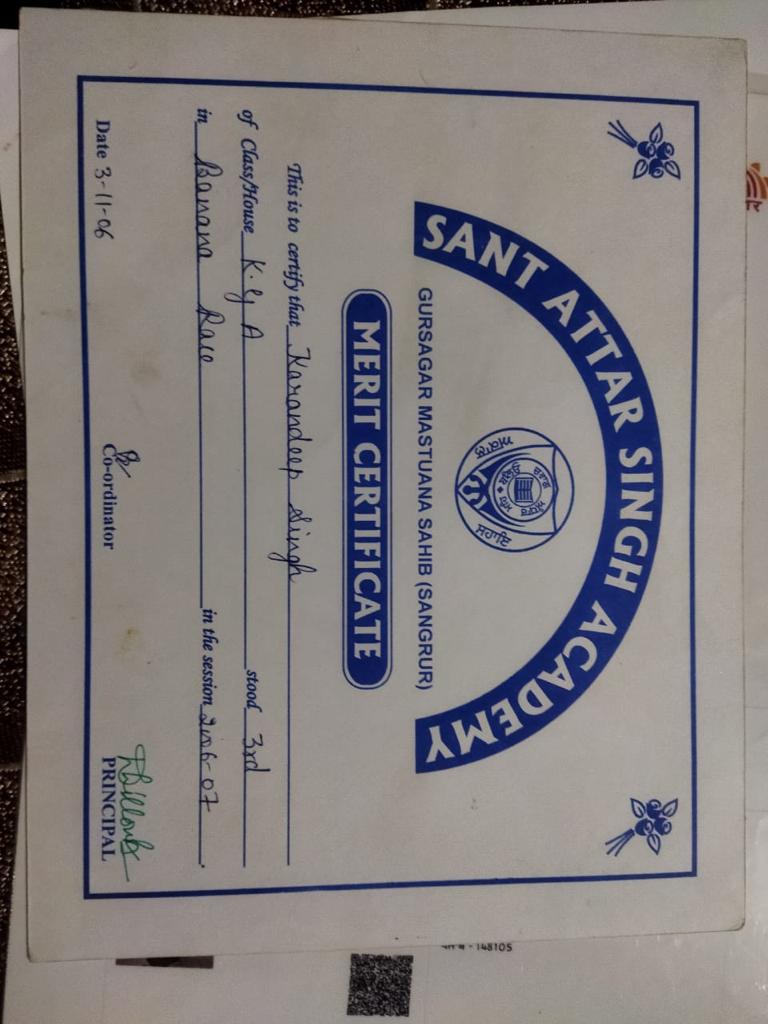 SANT ATTAR SINGH ACADEMY
ਅਕਾਲ ਸਹਾਇ
GURSAGAR MASTUANA SAHIB (SANGRUR)
MERIT CERTIFICATE
This is to certify that Karandeep Singh
of Class/House K.G A stood 3rd
in Banana Race in the session 2006-07.
Date 3-11-06
Co-ordinator
PRINCIPAL
- 148105